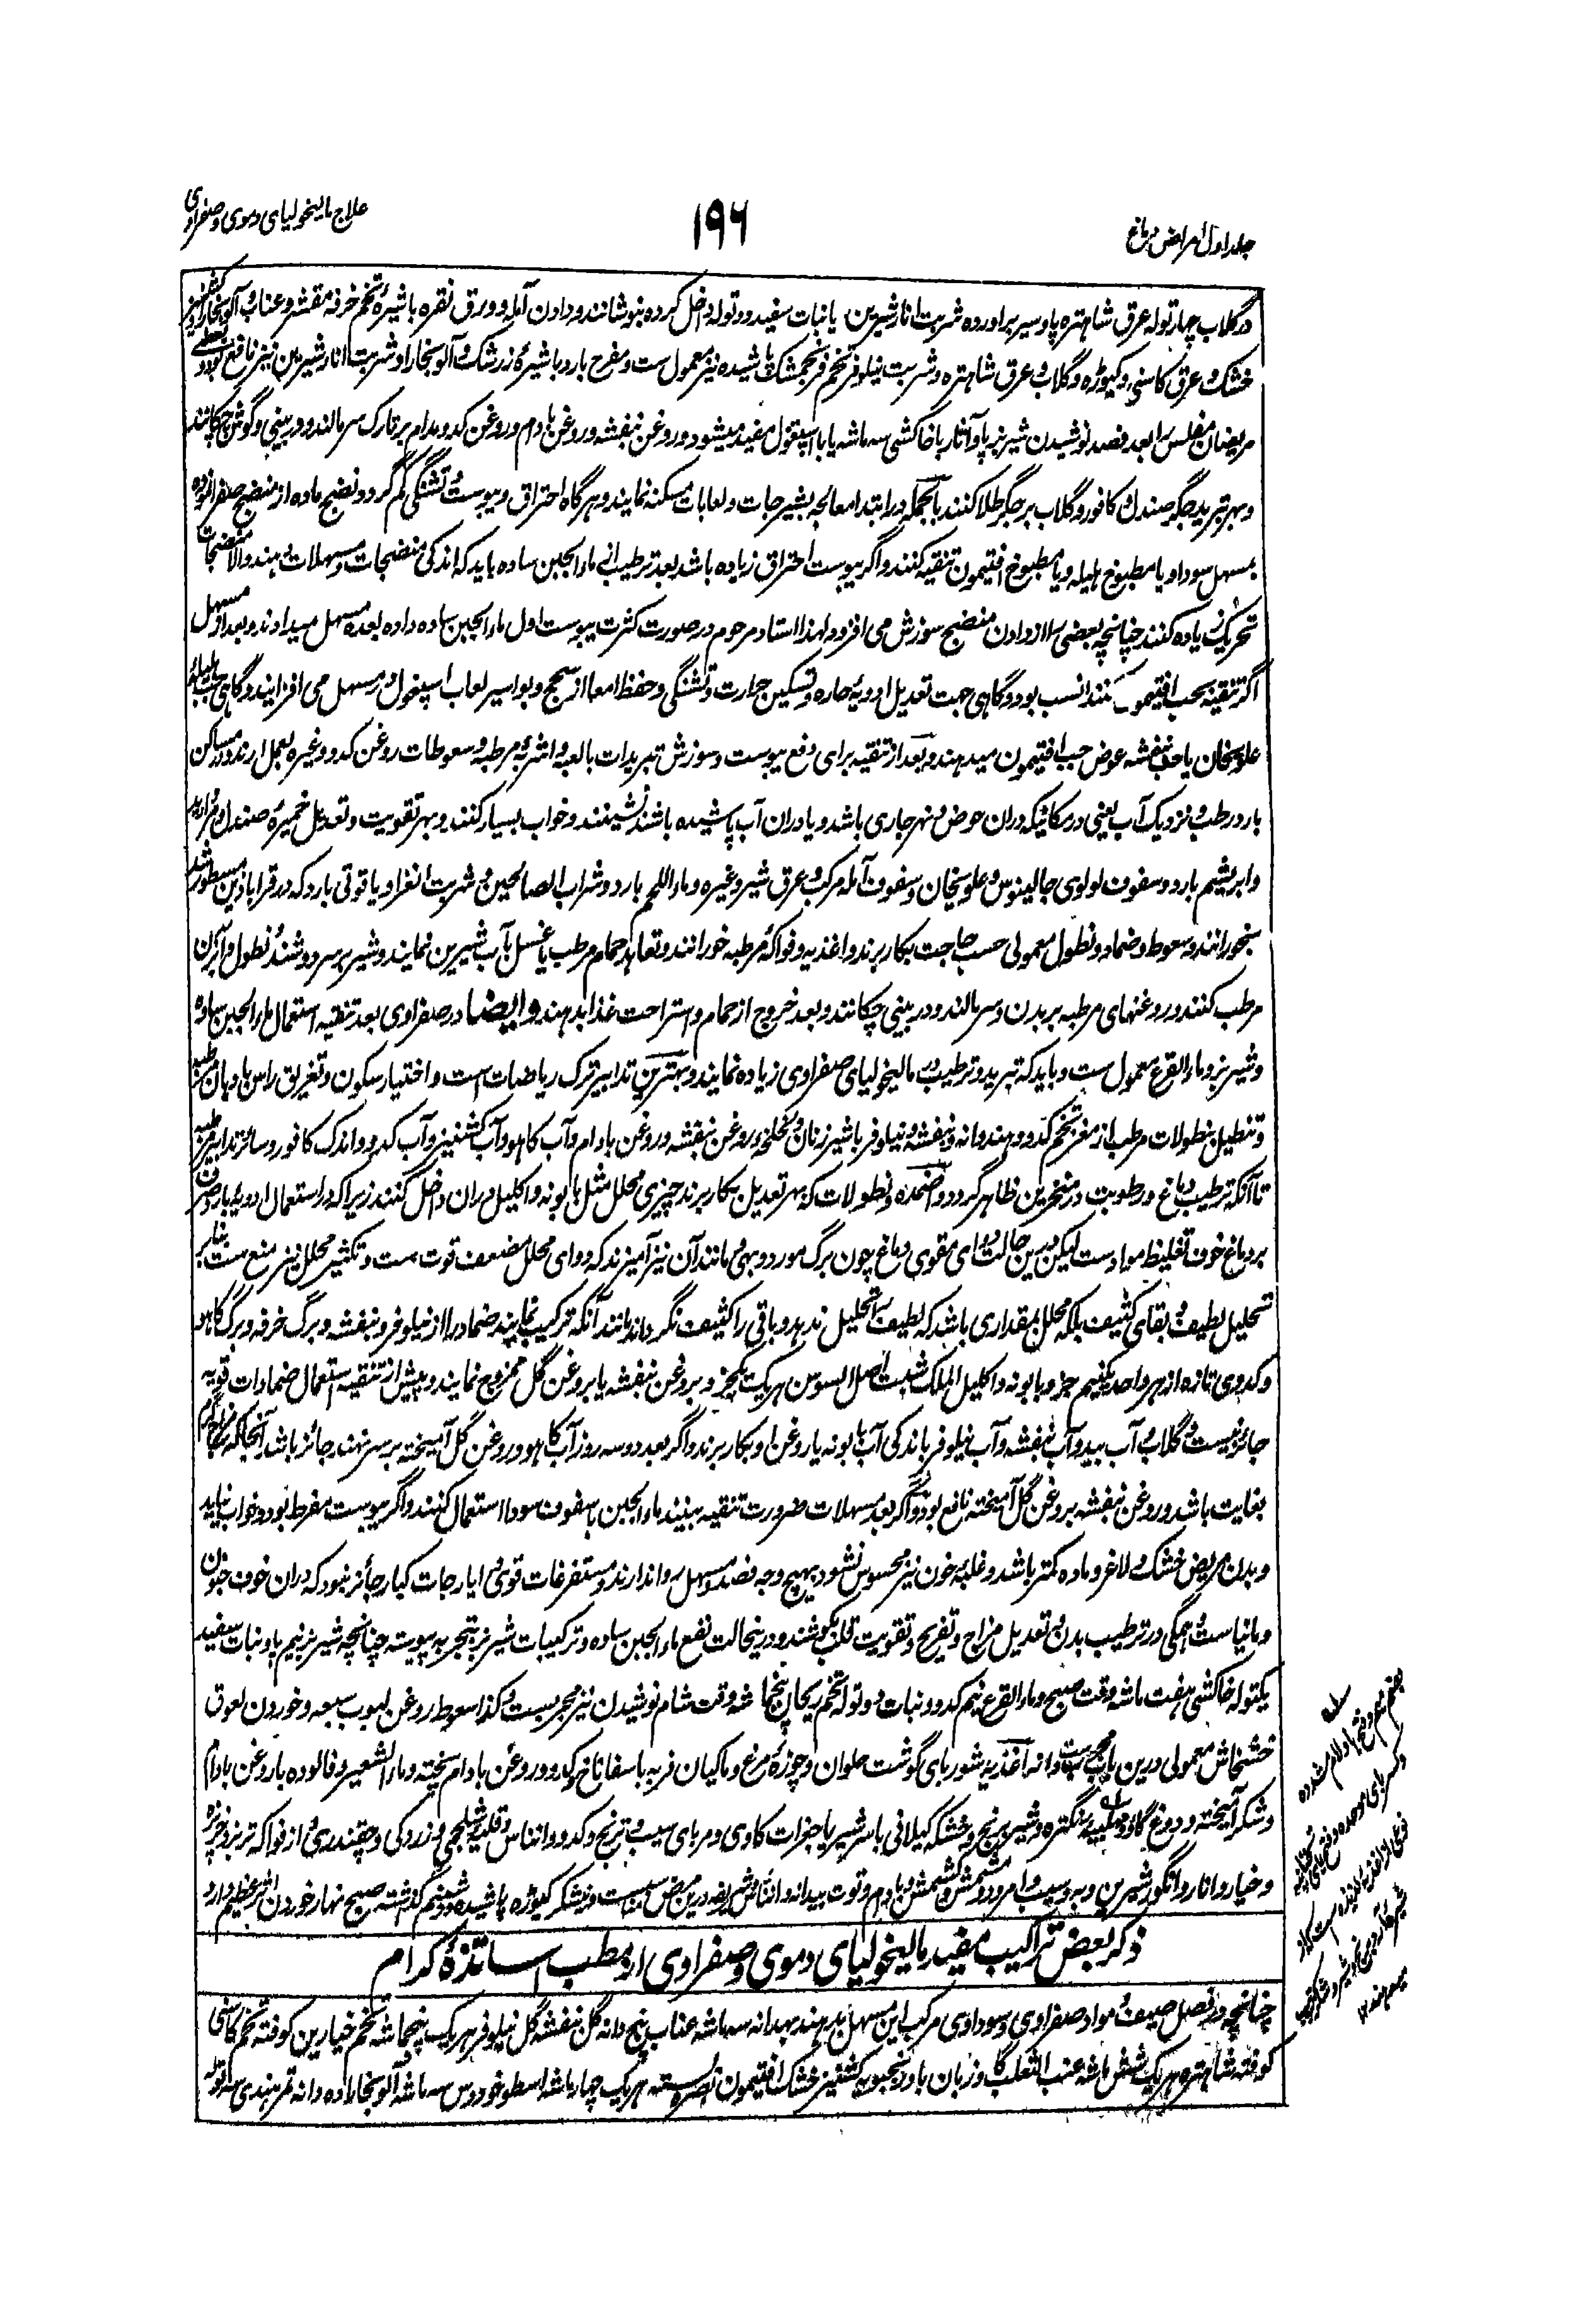 جلد اول امراض دماغ
۱۹۶
علاج مالیخولیای دموی و صفراوی
در گلاب چهار توله عرق شاهتره پاو سیر براورده شربت انار شیرین یا نبات سفید دو توله داخل کرده بنوشانند و دادن آمله و ورق نقره با شیرهٔ تخم خرفه مقشر و عناب و آلو بخارا و کشنیز
خشک و عرق کاسنی و کیوڑه و گلاب و عرق شاهتره و شربت نیلوفر تخم فرنجمشک پاشیده نیز معمول ست و مفرح بارد با شیرهٔ زرشک و آلو بخارا و شربت انار شیرین نیز نافع بود و بعضی
مریضان مفلس را بعد فصد نوشیدن شیر بز پاو آثار با خاکشی سه ماشه یا با اسپغول مفید میشود و روغن بنفشه و روغن بادام و روغن کدو مدام بر تارک سر مالند و در بینی و گوش چکانند
و بهر تبرید جگر صندل و کافور و گلاب بر جگر طلا کنند بالجمله در ابتدا معالجه بشیرجات و لعابات مسکنه نمایند و هرگاه احتراق و یبوست و تشنگی کم گردد نضج ماده از منضج صفرا نموده
بمسهل سودا و یا مطبوخ هلیله و یا مطبوخ افتیمون تنقیه کنند و اگر یبوست احتراق زیاده باشد بعد ترطیب از ماء الجبن ساده باید که اندکی منضجات و مسهلات دهند و الا منضجات
تحریک زیاده کنند چنانچه بعضی را از دادن منضج سوزش می افزود لهذا استاد مرحوم در صورت کثرت یبوست اول ماء الجبن ساده داده بعده مسهل میدادند و بعد از مسهل
اگر تنقیه بحب افتیمون کنند انسب بود و گاهی جهت تعدیل ادویهٔ حاره و تسکین حرارت و تشنگی و حفظ امعا از سحج و بواسیر لعاب اسپغول در مسهل می افزایند و گاهی حب هلیله
علویخان یا حب بنفشه عوض حب افتیمون میدهند و بعد از تنقیه برای دفع یبوست و سوزش تبریدات بالعبه و اشربه مرطبه و سعوطات روغن کدو وغیره بعمل ارند و در مساکن
بارد رطب و نزدیک آب یعنی در مکانیکه دران حوض و نهر جاری باشد و یا دران آب پاشیده باشند نشینند و خواب بسیار کنند و بهر تقویت و تعدیل خمیرهٔ صندل و مروارید
و ابریشم بارد و سفوف لولوی جالینوس و علویخان و سفوف آمله مرکب و عرق شیر وغیره و ماء اللحم بارد و شراب الصالحین و شربت انفرا و یاقوتی بارد که در قرابادین مسطور شد
بخورانند و سعوط و ضماد و نطول معمولی حسب حاجت بکار برند و اغذیه و فواکه مرطبه خورانند و تعاهد حمام مرطب یا غسل بآب شیرین نمایند و شیر بر سر دوشند و نطول و آبزن
مرطب کنند و روغنهای مرطبه بر بدن و سر مالند و در بینی چکانند و بعد خروج از حمام و استراحت غذا بدهند وایضا در صفراوی بعد تنقیه استعمال ماء الجبن ساده
و شیر بز و ماء القرع معمول ست و باید که تبرید و ترطیب در مالیخولیای صفراوی زیاده نمایند و بهترین تدابیر ترک ریاضات است و اختیار سکون و تغریق راس بادهان رطبه
و تنطیل بنطولات مرطب از مغز تخم کدو و هندوانه و بنفشه و نیلوفر با شیر زنان و لخلخه و روغن بنفشه و روغن بادام و آب کاهو و آب کشنیز و آب کدو و اندک کافور و سائر تدابیر مرطبه
تا آنکه ترطیب دماغ و رطوبت در منخرین ظاهر گردد و اضمده و نطولات که بهر تعدیل بکار برند چیزی محلل مثل بابونه و اکلیل دران داخل کنند زیرا که در استعمال ادویهٔ بارد صرف
بر دماغ خوف تغلیظ مواد ست لیکن درین حالت دوای مقوی دماغ چون برگ مورد و بهی و مانند آن نیز آمیزند که دوای محلل مضعف قوت ست و تکثیر محلل نیز منع ست بنابر
تحلیل لطیف و بقای کثیف بلکه محلل بمقداری باشد که لطیف را تحلیل ندهد و باقی را کثیف نگرداند مانند آنکه ترکیب نمایند ضماد را از نیلوفر و بنفشه و برگ خرفه و برگ کاهو
و کدوی تازه از هر واحد یکنیم جزو بابونه و اکلیل الملک شبت اصل السوس هریک یکجزو بروغن بنفشه یا بروغن گل ممزوج نمایند و پیش از تنقیه استعمال ضمادات قویه
جائز نیست و گلاب و آب بید و آب بنفشه و آب نیلوفر باندکی آب بابونه یا روغن او بکار برند و اگر بعد دو سه روز آب کاهو و روغن گل آمیخته بر سر نهند جائز باشد آنجا که مزاج گرم
بغایت باشد و روغن بنفشه بروغن گل آمیخته نافع بود و اگر بعد مسهلات ضرورت تنقیه بینند ماء الجبن با سفوف سودا استعمال کنند و اگر یبوست مفرط بود و خواب نیاید
و بدن مریض خشک و لاغر و ماده کمتر باشد و غلبهٔ خون نیز محسوس نشود بهیچ وجه فصد و مسهل روا ندارند و مستفرغات قوی و ایارجات کبار جائز نبود که دران خوف جنون
و مانیاست و همگی در ترطیب بدن و تعدیل مزاج و تفریح و تقویت قلب کوشند و درینحالت نفع ماء الجبن ساده و ترکیبات شیر بز بتجربه پیوسته چنانچه شیر بز نیم پاو نبات سفید
یکتوله خاکشی هفت ماشه وقت صبح و ماء القرع نیم کدو و نبات دو توله تخم ریحان پنجماشه وقت شام نوشیدن نیز مجربست و کذا سعوط روغن لبوب سبعه و خوردن لعوق
خشخاش معمولی درین باب مجرب ست و اغذیه شوربای گوشت حلوان و چوزهٔ مرغ و ماکیان فربه با اسفاناخ و کدو و روغن بادام پخته و ماء الشعیر و فالوده با روغن بادام
و شکر آمیخته و دوغ گاو و شیر برنج و خشکه گیلانی با شیر یا جغرات گاوی و مربای سیب و ترنج و کدو و انناس و قلیهٔ شلجمی و زردکی و چقندری و از فواکه تربز و خرپزه
و خیار و انار و انگور شیرین و به و سیب و امرود و مشمش و کشمش و بادام و توت بیدانه و انناس و شریفه درین مرض مناسبست و نیشکر کیوڑه پاشیده و شبنم گذشته صبح نهار خوردن اثر عظیم دارد
ذکر بعض تراکیب مفید مالیخولیای دموی و صفراوی از مطب اساتذهٔ کرام
چنانچه در فصل صیف و مواد صفراوی و سوداوی مرکب این مسهل بدهند بهدانه سه ماشه عناب پنج دانه گل بنفشه گل نیلوفر هریک پنجماشه تخم خیارین کوفته تخم کاسنی
کوفته شاهتره هریک شش ماشه عنب الثعلب گاوزبان بادرنجبویه کشنیز خشک افتیمون بصره بسته هریک چهار ماشه اسطوخودوس سه ماشه آلو بخارا ده دانه تمر هندی سه توله